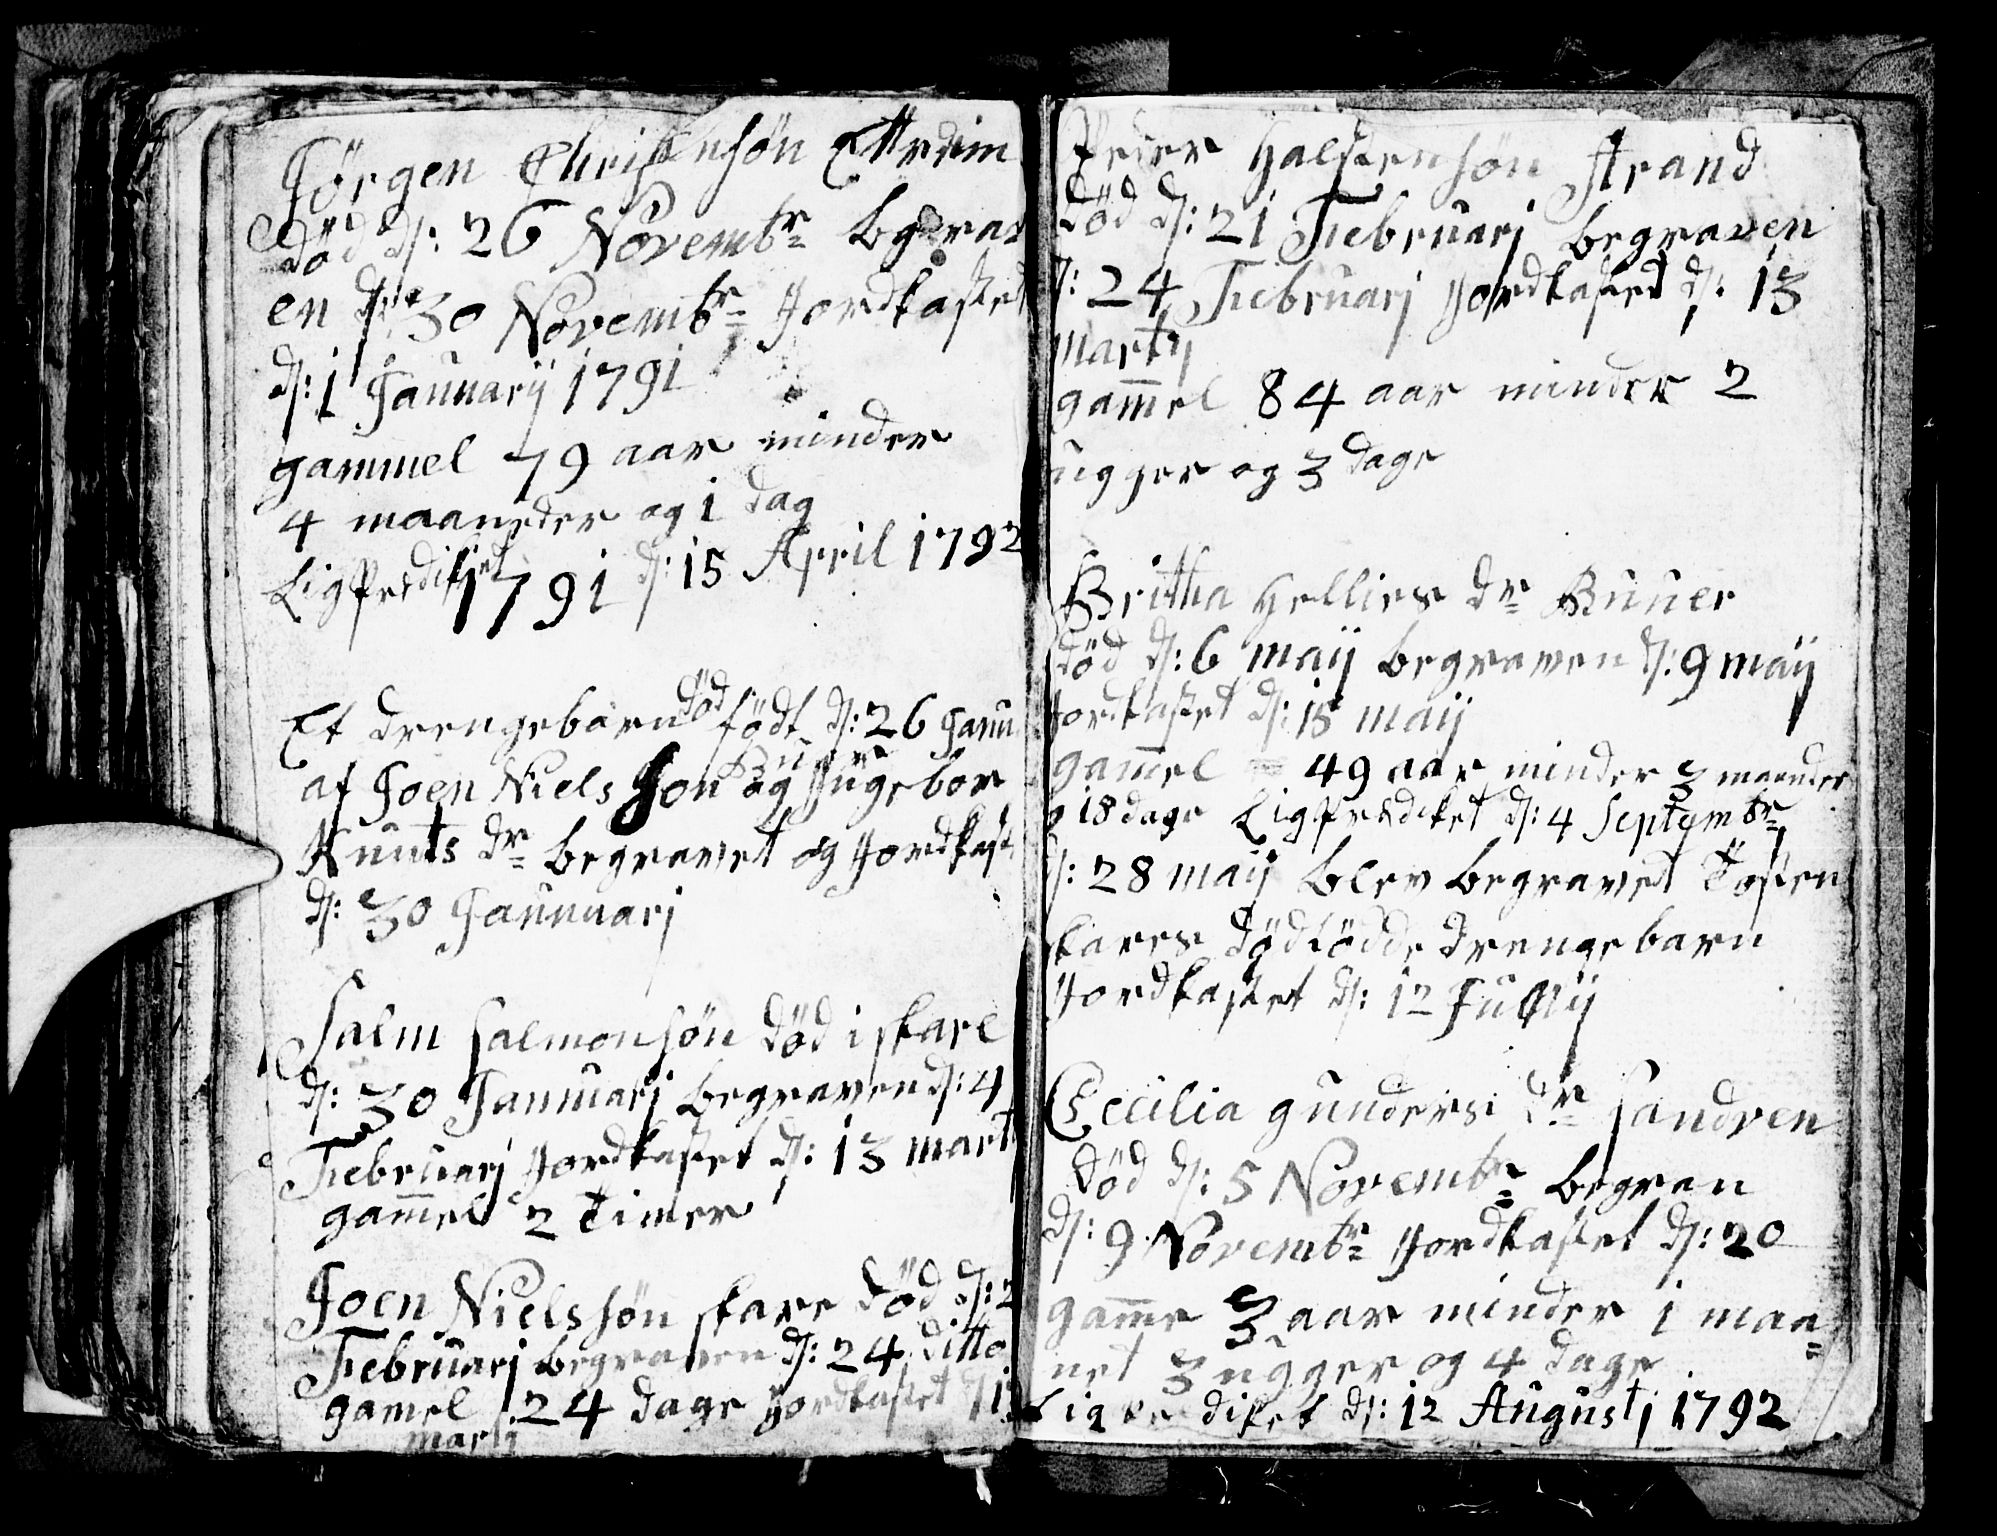 Jörgen Christensön Ettrdim
Död d: 26 Novembr begrav
en d: 30 Novembr Jordkastet
d: 1 Januarij 1791
gammel 79 aar minder
4 maaneder og 1 dag
LigPrediket d: 15 April 1792
1791
Et drengebarn död födt d: 26 Janu
af Joen Niels Son Buer og Ingebor
Knuts dr begravet og Jordkast
d: 30 Januuarj
Salm Salmonsön död i skare
d: 30 Januuarj begraven d: 4
Februarj Jordkastet d: 13 mart
gam̅el 2 timer
Joen Nielssön skare död d: 2
Februarj begraven d: 24 ditto
gamel 24 dage Jordkastet d 13
martj
Peder Halstensön Strand
död d: 21 Februarj begraven
d: 24 Februarj Jordkasted d: 13
martij
gam̅el 84 aar minder 2
ugger og 3 dage
Britha Hellies dr Buuer
död d: 6 maij begraven d: 9 maij
Jordkastet d: 15 maij
gam̅el 49 aar minder 3 maander
og 18 dage LigPrediket d: 4 Septembr
d: 28 maij blev begravet Tosten
skares dödfödde drengebarn
Jordkastet d: 12 Julij
Cecilia gunders dr Sandven
död d: 5 Novembr begraven
d: 9 Novembr Jordkastet d: 20
gam̅e 3 aar minder 1 maa=
net 3 ugger og 4 dage
Ligprediket d: 12 Augustj 1792